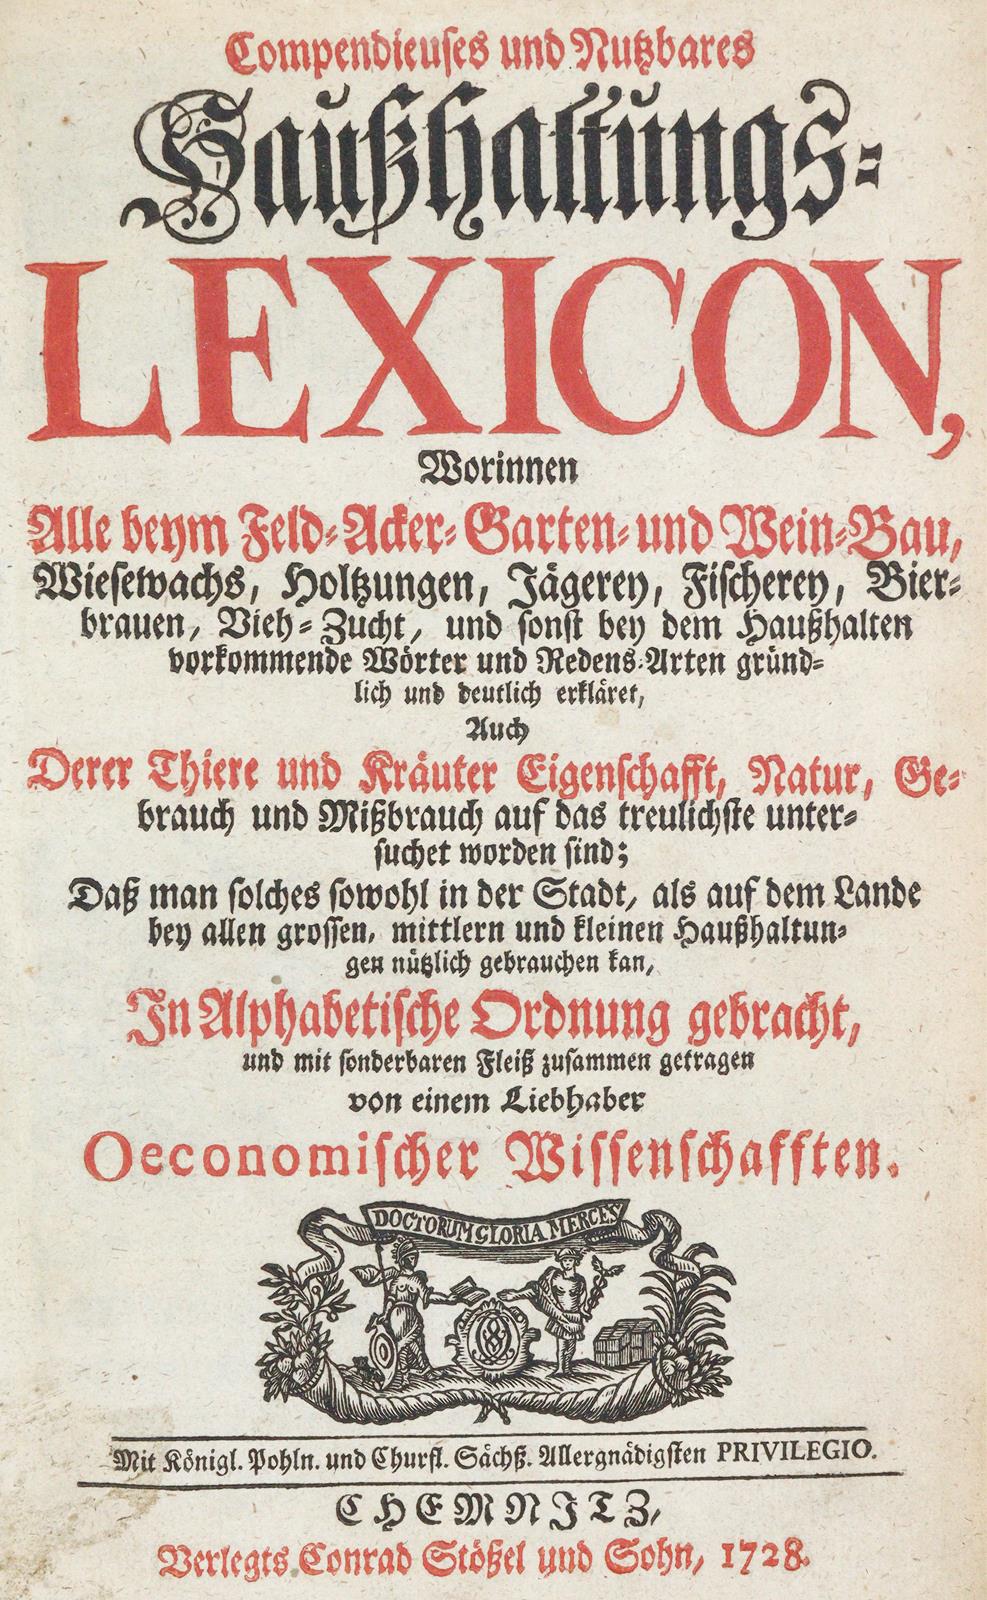 Compendieuses und Nutzbares
Haußhaltungs-
LEXICON,
Worinnen
Alle beym Feld-Acker-Garten-und Wein-Bau,
Wiesewachs, Holtzungen, Jägerey, Fischerey, Bier-
brauen, Vieh-Zucht, und sonst bey dem Haußhalten
vorkommende Wörter und Redens-Arten gründ-
lich und deutlich erkläret,
Auch
Derer Thiere und Kräuter Eigenschafft, Natur, Ge-
brauch und Mißbrauch auf das treulichste unter-
suchet worden sind;
Daß man solches sowohl in der Stadt, als auf dem Lande
bey allen grossen, mittlern und kleinen Haußhaltun-
gen nützlich gebrauchen kan,
In Alphabetische Ordnung gebracht,
und mit sonderbaren Fleiß zusammen getragen
von einem Liebhaber
Oeconomischer Wissenschafften.
DOCTORUM GLORIA MERCES
Mit Königl. Pohln. und Churfl. Sächß. Allergnädigsten PRIVILEGIO.
CHEMNITZ,
Verlegts Conrad Stößel und Sohn, 1728.